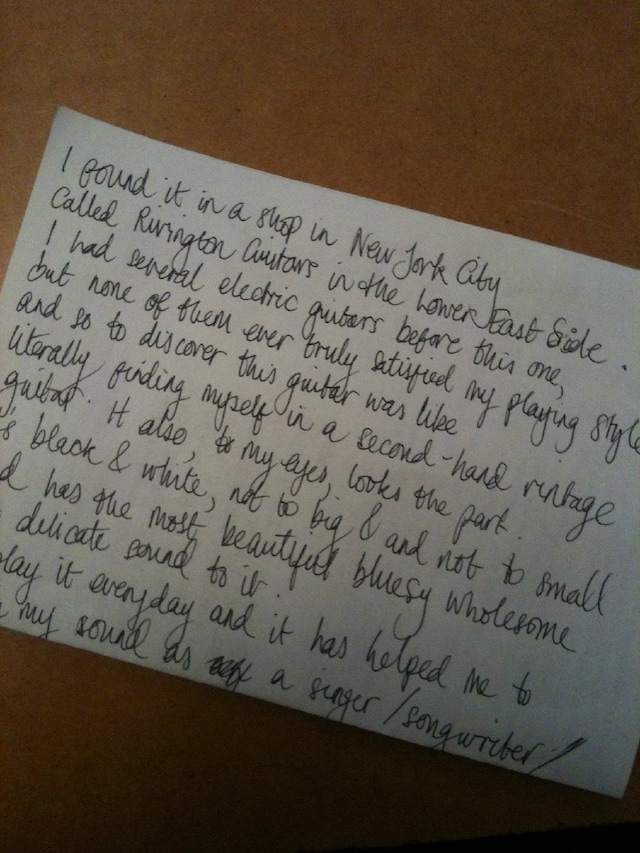 I found it in a shop in New York City
Called Rivington Guitars in the Lower East Side.
I had several electric guitars before this one,
but none of them ever truly satisfied my playing style
and so to discover this guitar was like
literally finding myself in a second-hand vintage
guitar. It also, to my eyes, looks the part.
s black & white, not to big & and not to small
d has the most beautiful bluesy wholesome
delicate sound to it.
play it everyday and it has helped me to
my sound as a singer/songwriter/